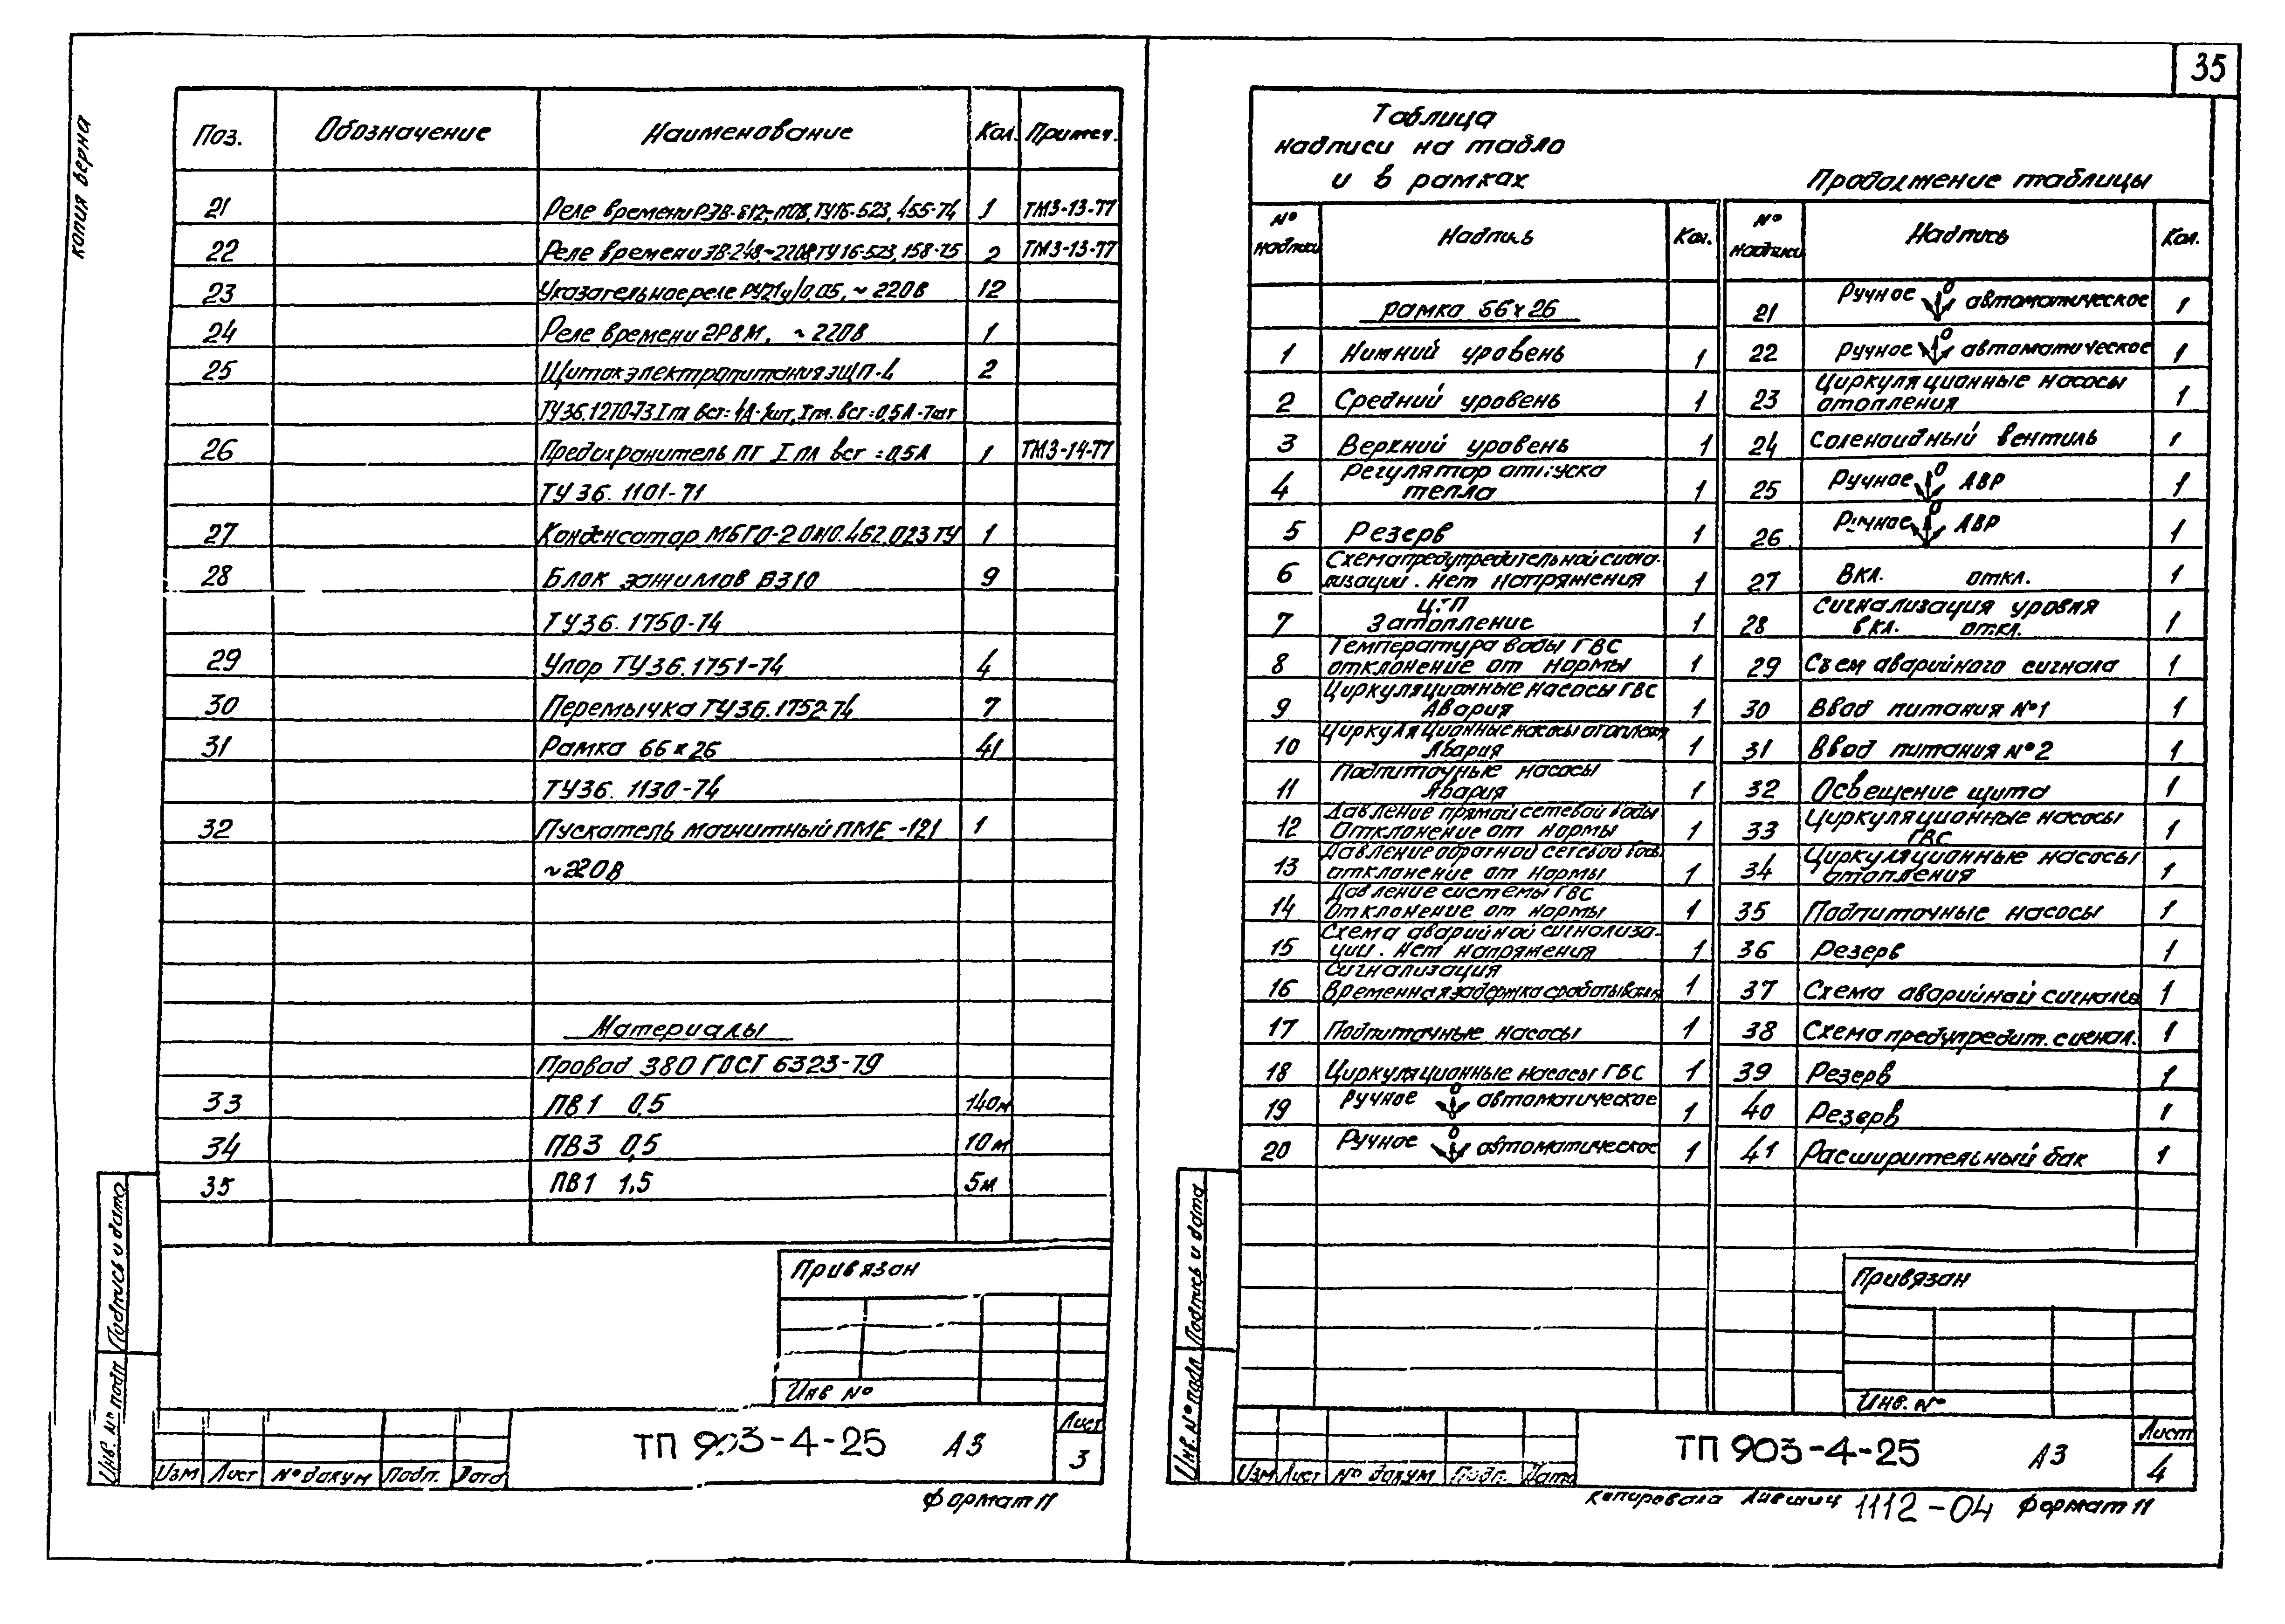 35
копия верна
Поз. Обозначение Наименование Кол. Примеч.
21 Реле времени РЭВ-812, ТУ16-523, 455-74 1 ТМ3-13-77
22 Реле времени ЭВ-248,~220В, ТУ16-523, 158-75 2 ТМ3-13-77
23 Указательное реле РУ21у/0,05, ~ 220В 12
24 Реле времени 2РВМ, ~ 220В 1
25 Щиток электропитания ЭЩП-4 2
ТУ36.1270-73 I пл вст = 1А- 1шт, I пл. вст = 0,5А-7шт
26 Предохранитель ПТ I пл вст = 0,5А 1 ТМ3-14-77
ТУ 36. 1101-71
27 Конденсатор МБГО-2 ОЖ0.462.023 ТУ 1
28 Блок зажимов БЗ10 9
ТУ36. 1750-74
29 Упор ТУ36.1751-74 4
30 Перемычка ТУ36.1752-74 7
31 Рамка 66 x 26 41
ТУ36. 1130-74
32 Пускатель магнитный ПМЕ -121 1
~220В
Материалы
Провод 380 ГОСТ 6323-79
33 ПВ1 0,5 140м
34 ПВ3 0,5 10м
35 ПВ1 1,5 5м
Привязан
Инв №
ТП 903-4-25 А3
Лист
3
Изм Лист № докум Подп. Дата
Формат 11
Инв. № подл Подпись и дата
Таблица
надписи на табло
и в рамках
№ надписи Надпись Кол.
рамка 66x26
1 Нижний уровень 1
2 Средний уровень 1
3 Верхний уровень 1
4 Регулятор отпуска
тепла 1
5 Резерв 1
6 Схема предупредительной сигна-
лизации. Нет напряжения 1
7 ЦТП
Затопление 1
8 Температура воды ГВС
отклонение от нормы 1
9 Циркуляционные насосы ГВС
Авария 1
10 Циркуляционные насосы отопления
Авария 1
11 Подпиточные насосы
Авария 1
12 Давление прямой сетевой воды
Отклонение от нормы 1
13 Давление обратной сетевой воды
отклонение от нормы 1
14 Давление системы ГВС
Отклонение от нормы 1
15 Схема аварийной сигнализа-
ции. Нет напряжения 1
16 Сигнализация
Временная задержка срабатывания 1
17 Подпиточные насосы 1
18 Циркуляционные насосы ГВС 1
19 Ручное 0 автоматическое 1
20 Ручное 0 автоматическое 1
Продолжение таблицы
№ надписи Надпись Кол.
21 Ручное 0 автоматическое 1
22 Ручное 0 автоматическое 1
23 Циркуляционные насосы
отопления 1
24 Соленоидный вентиль 1
25 Ручное 0 АВР 1
26 Ручное 0 АВР 1
27 Вкл. откл. 1
28 Сигнализация уровня
вкл. откл. 1
29 Съем аварийного сигнала 1
30 Ввод питания №1 1
31 Ввод питания №2 1
32 Освещение щита 1
33 Циркуляционные насосы
ГВС 1
34 Циркуляционные насосы
отопления 1
35 Подпиточные насосы 1
36 Резерв 1
37 Схема аварийной сигнализ 1
38 Схема предупредит. сигнал. 1
39 Резерв 1
40 Резерв 1
41 Расширительный бак 1
Привязан
Инв. №
ТП 903-4-25 А3
Лист
4
Изм Лист № докум Подп. Дата
Инв. № подл Подпись и дата
копировала Лившиц 1112-04 Формат 11